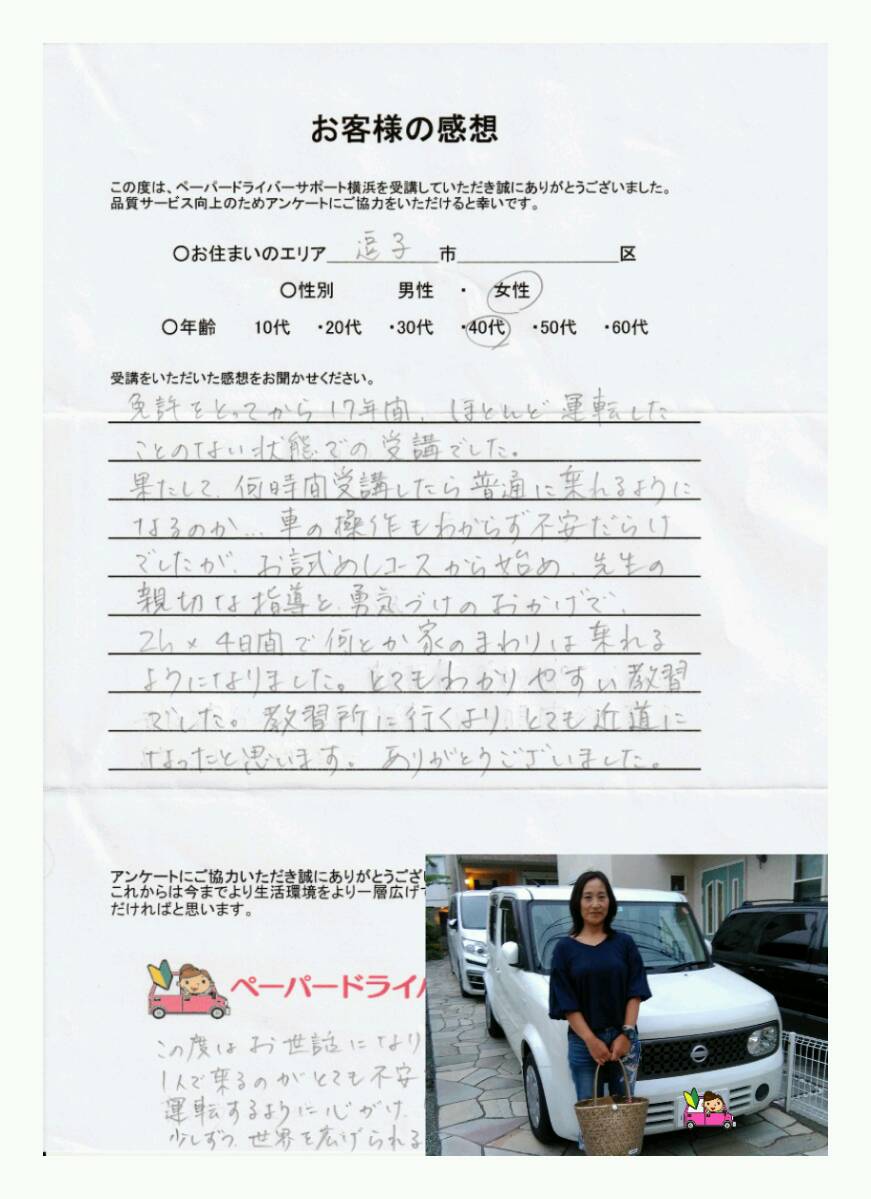 お客様の感想
この度は、ペーパードライバーサポート横浜を受講していただき誠にありがとうございました。
品質サービス向上のためアンケートにご協力をいただけると幸いです。
〇お住まいのエリア 逗子 市 区
〇性別 男性 ・ 女性
〇年齢 10代 ・20代 ・30代 ・40代 ・50代 ・60代
受講をいただいた感想をお聞かせください。
免許をとってから17年間、ほとんど運転した
ことのない状態での受講でした。
果たして、何時間受講したら普通に乗れるように
なるのか…車の操作もわからず不安だらけ
でしたが、お試めしコースから始め、先生の
親切な指導と、勇気づけのおかげで、
2h×4日間で何とか家のまわりは乗れる
ようになりました。とてもわかりやすい教習
でした。教習所に行くより、とても近道に
なったと思います。ありがとうございました。
アンケートにご協力いただき誠にありがとうござい
これからは今までより生活環境をより一層広げ
だければと思います。
ペーパードライ
この度はお世話になり
1人で乗るのがとても不安
運転するように心がけ、
少しずつ、世界を広げられる